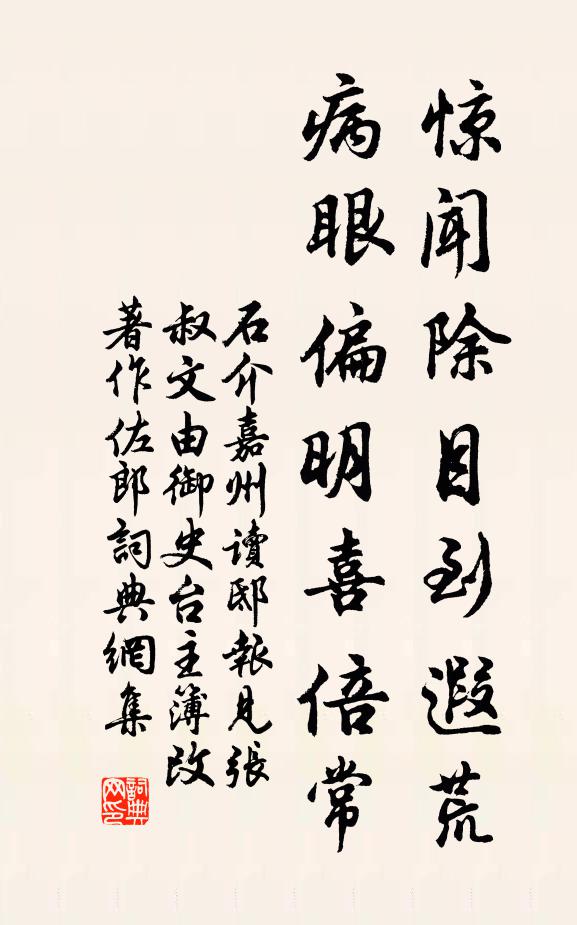 惊闻除目到遐荒
病眼偏明喜倍常
石介嘉州读邸報見張
叔文由御史台主簿改
著作佐郎詞典網集
詞典
网印